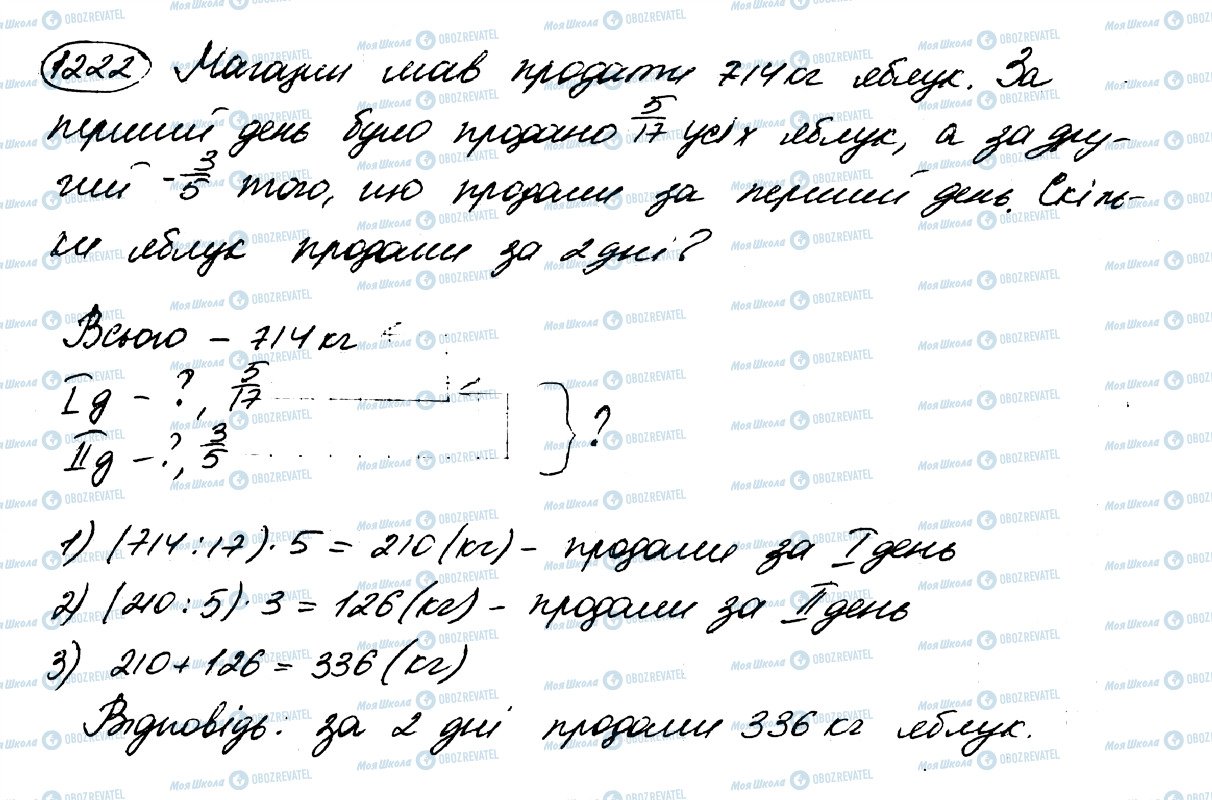 1222 Магазин мав продати 714 кг яблук. За
перший день було продано 5/17 усіх яблук, а за дру-
гий - 3/5 того, що продали за перший день. Скіль-
ки яблук продали за 2 дні?
Всього – 714 кг
I д – ?, 5/17
II д – ?, 3/5 } ?
1) (714 : 17) · 5 = 210 (кг) – продали за I день
2) (210 : 5) · 3 = 126 (кг) – продали за II день
3) 210 + 126 = 336 (кг)
Відповідь: за 2 дні продали 336 кг яблук.
Моя Школа OBOZREVATEL